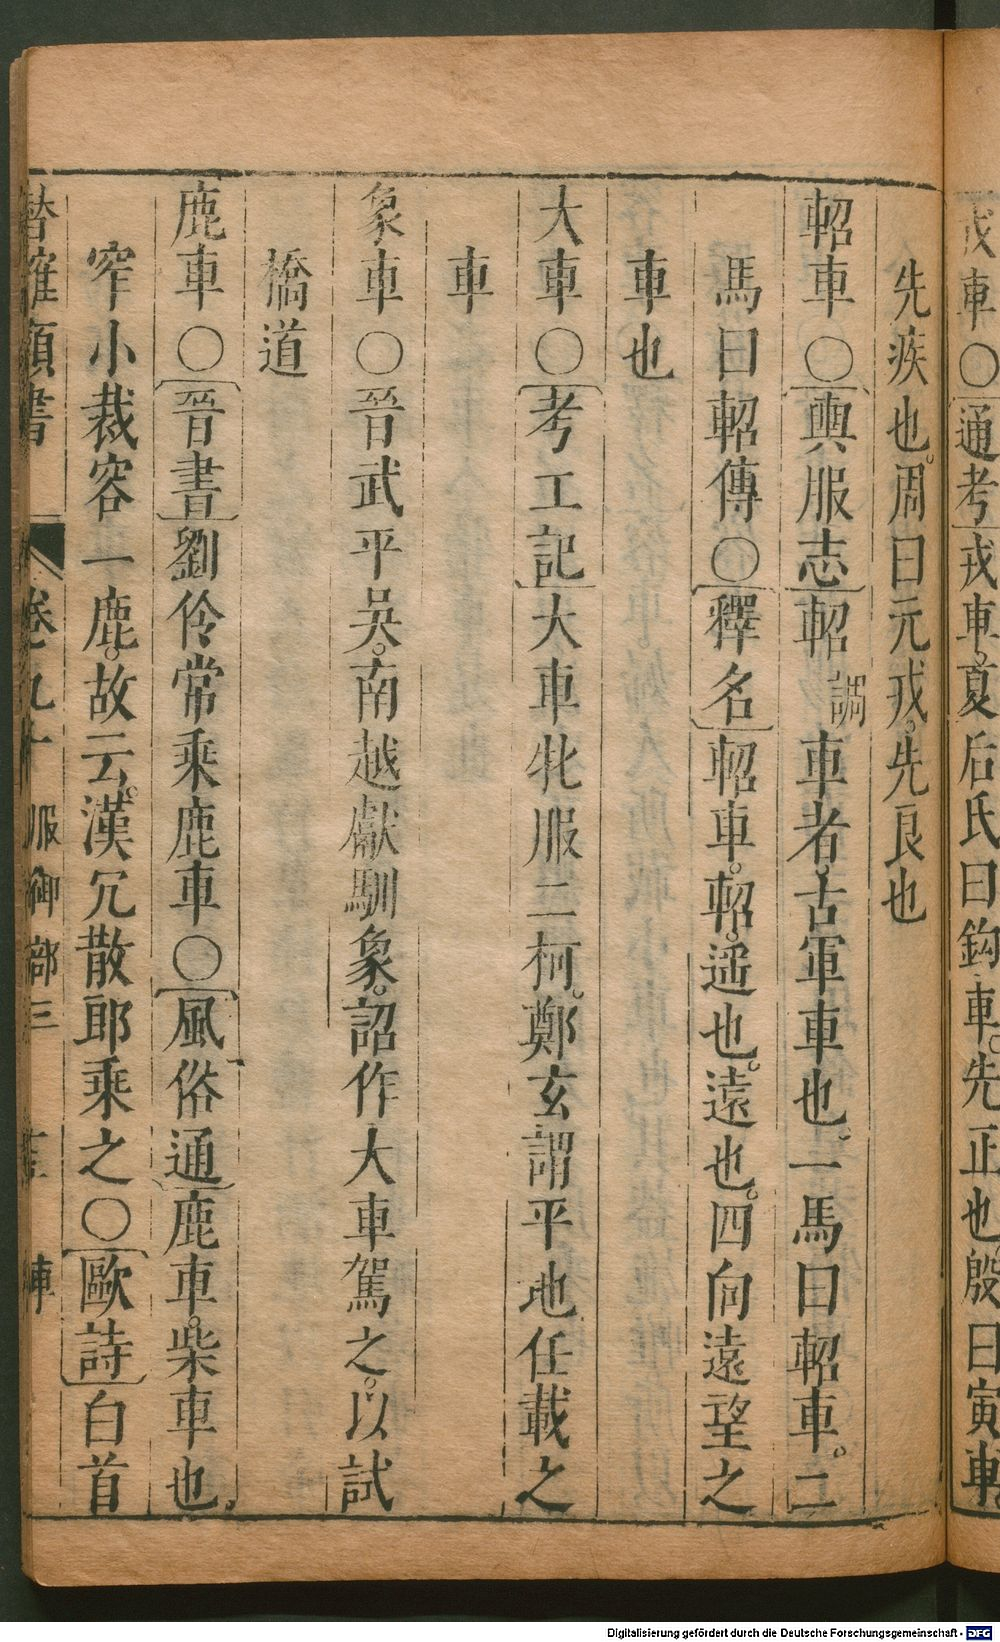 戎車○通考戎車夏后氏曰鈎車先正也殷曰寅車
先疾也周曰元戎先良也
軺車○輿服志軺調車者古軍車也一馬曰軺車二
馬曰軺傳○釋名軺車軺遥也遠也四向遠望之
車也
大車○考工記大車牝服二柯鄭玄謂平地任載之
車
象車○晉武平吳南越獻馴象詔作大車駕之以試
橋道
鹿車○晉書劉伶常乘鹿車○風俗通鹿車柴車也
窄小裁容一鹿故云漢冗散郎乘之○歐詩白首
卷九十 服御部三 車
Digitalisierung gefördert durch die Deutsche Forschungsgemeinschaft - DFG